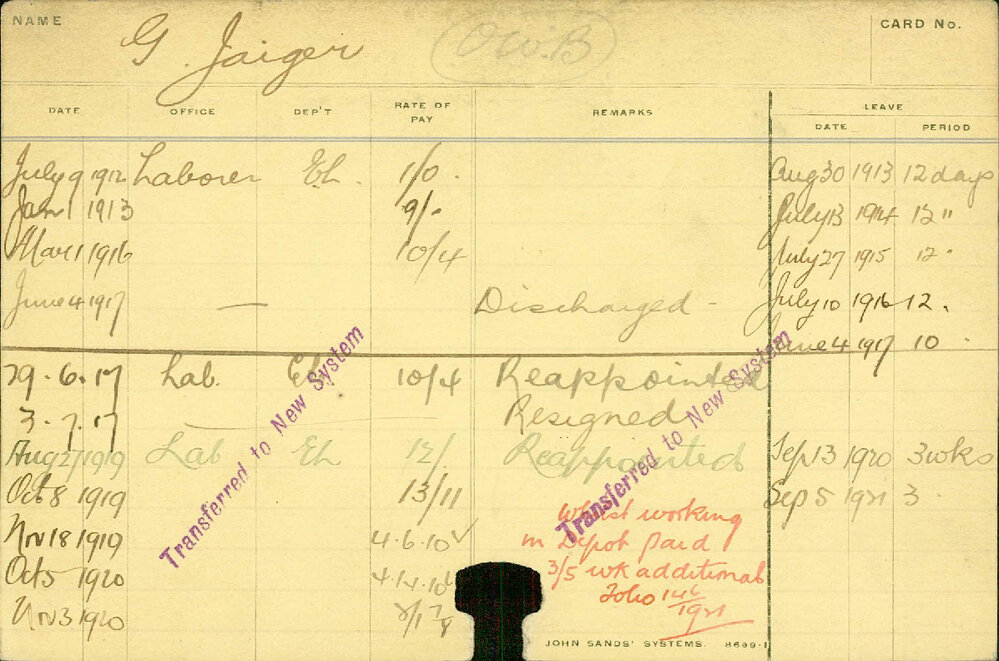 NAME G. Jaiger O.W.B CARD No.
DATE OFFICE DEP'T RATE OF PAY REMARKS LEAVE
DATE PERIOD
July 9 1912 Laborer Eh. Aug 30 1913 12 days
Jan 1 1913 9/- July 13 1914 12 "
Mar 1 1916 10/4 July 27 1915 12 "
June 4 1917 — Discharged - July 10 1916 12 .
June 4 1917 10 .
29.6.17 Lab. Eh 10/4 Reappointed
3.7.17 Resigned
Aug 27 1919 Lab Eh 12/. Reappointed Sep 13 1920 3 wks
Oct 8 1919 13/11 Sep 5 1921 3 .
Nov 18 1919 4.6.10
Oct 5 1920 4.14.10
Nov 3 1920
Whilst working
in Depot paid
3/5 wk additional
Folio 146/1921
Transferred to New System
Transferred to New System
JOHN SANDS' SYSTEMS. 8699-1